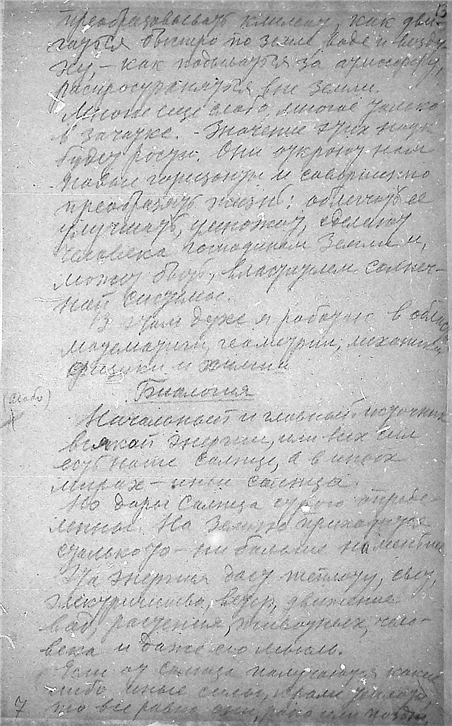 13
преобразовывать климат, как дви-
гаться быстро по земле воде и возду-
ху, – как подыматься за атмосферу,
распространяться вне земли.
Многое еще слабо, многое только
в зачатке. – Значение этих наук
будет расти. Они откроют нам
новые горизонты и совершенно
преобразят жизнь: облегчат ее
улучшат, умножат, сделают
человека господином Земли и,
может быть, властителем солнеч-
ной системы.
В этом духе я работаю в области
математики, геометрии, механики
физики и химии
Биология
(слабо)
Начальный и главный источник
всякой энергии, или всех сил
есть наше солнце, а в иных
мирах – иные солнца.
Но дары Солнца строго опреде-
ленны. На Землю приходится
столько-то – ни больше ни меньше
Эта энергия дает теплоту, свет,
электричество, ветер, движение
вод, растения, животных, чело-
века и даже его мысль.
Если от солнца получаются какие
либо иные силы, кроме
то все равно они
7